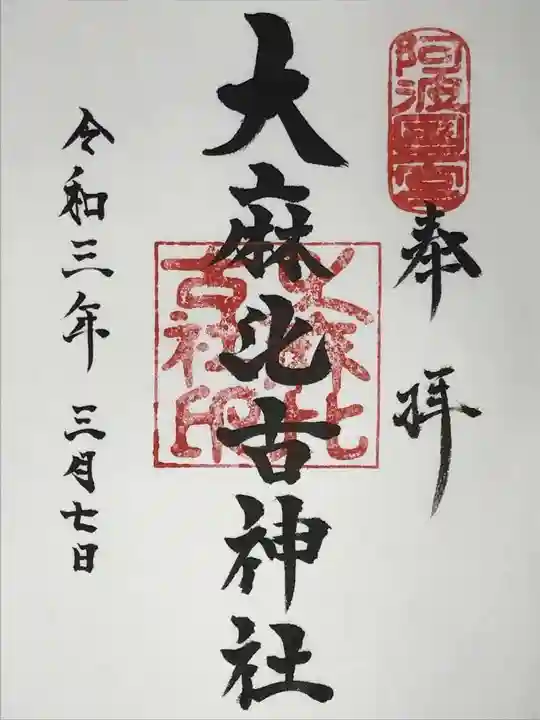 阿波國一宮
奉拝
大麻比古神社
大麻比古社印
令和三年三月七日